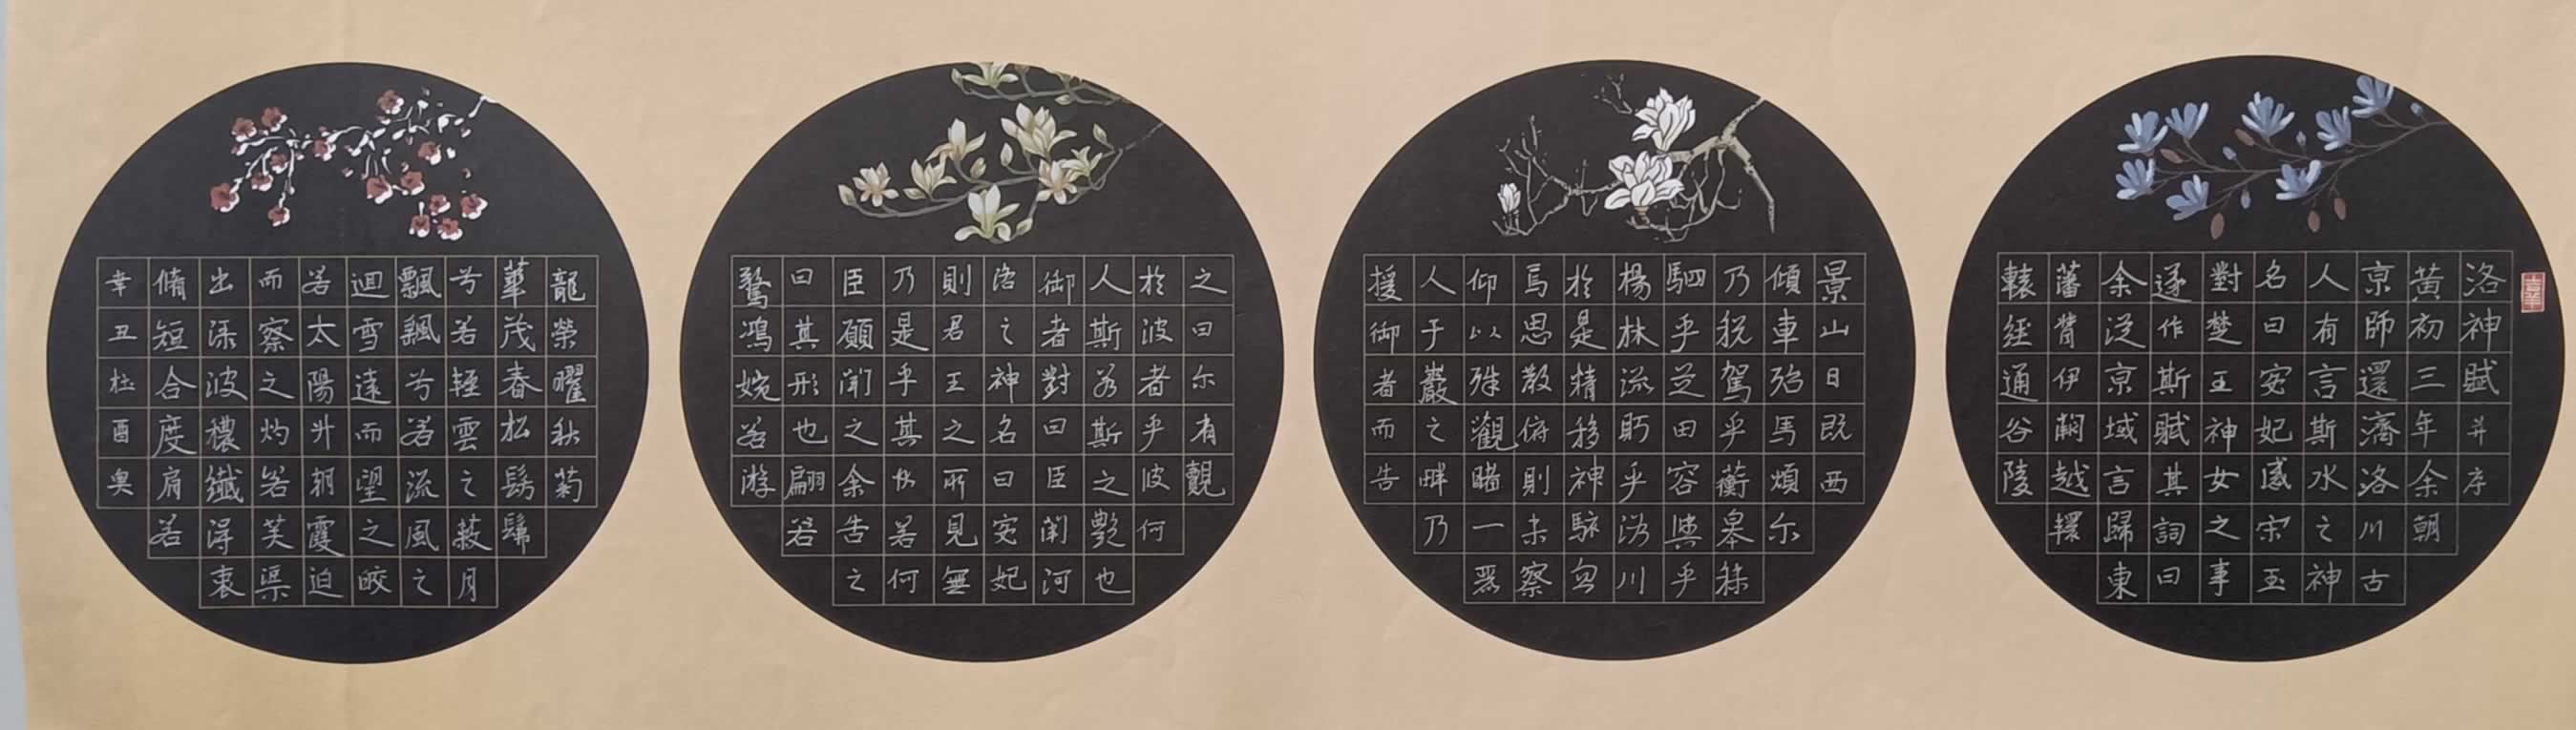 洛神賦并序
黄初三年余朝
京師還濟洛川古
人有言斯水之神
名曰宓妃感宋玉
對楚王神女之事
遂作斯賦其詞曰
余従京域言歸東
藩背伊闕越轘
轅經通谷陵
景山日既西
傾車殆馬煩尓
乃税駕乎蘅皋秣
駟乎芝田容與乎
楊林流眄乎洛川
於是精移神駭忽
焉思散俯則未察
仰以殊觀睹一麗
人于巖之畔乃
援御者而告
之曰尓有覿
於彼者乎彼何
人斯若斯之艷也
御者對曰臣聞河
洛之神名曰宓妃
則君王之所見無
乃是乎其状若何
臣願聞之余告之
曰其形也翩若
驚鴻婉若游
龍榮曜秋菊
華茂春松髣髴
兮若輕雲之蔽月
飄飖兮若流風之
迴雪遠而望之皎
若太陽升朝霞迫
而察之灼若芙渠
出渌波穠纖得衷
脩短合度肩若
辛丑桂酉奥